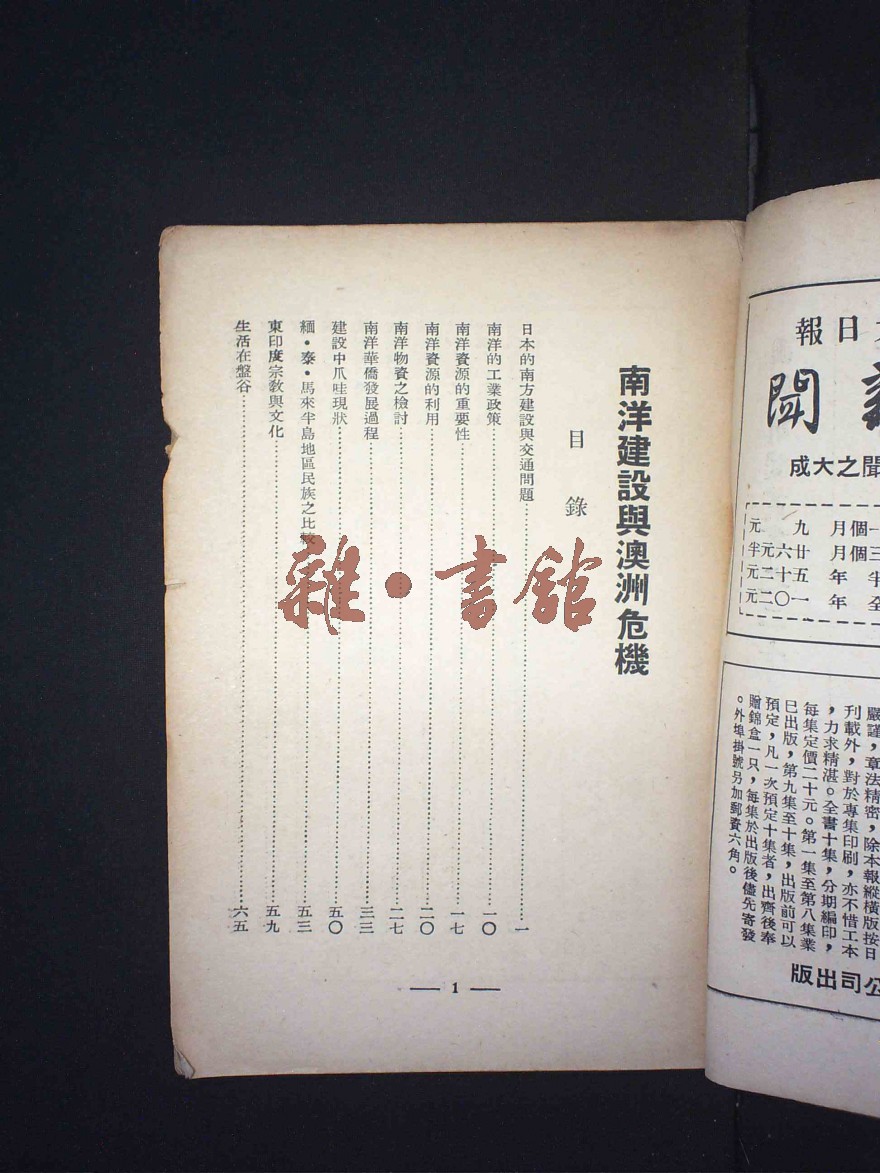 日報
聞
聞之大成
一個月 九元
三個月 廿六元半
半年 五十二元
全年 一〇二元
嚴謹，章法精密，除本報縱橫版按日
刊載外，對於專集印刷，亦不惜工本
，力求精湛。全書十集，分期編印，
每集定價二十元。第一集至第八集業
已出版，第九集至十集，出版前可以
預定，凡一次預定十集者，出齊後奉
贈錦盒一只，每集於出版後儘先寄發
。外埠掛號另加郵資六角。
公司出版
南洋建設與澳洲危機
目錄
日本的南方建設與交通問題……一
南洋的工業政策……一〇
南洋資源的重要性……一七
南洋資源的利用……二〇
南洋物資之檢討……二七
南洋華僑發展過程……三三
建設中爪哇現狀……五〇
緬·泰·馬來半島地區民族之比較……五三
東印度宗教與文化……五九
生活在盤谷……六五
— 1 —
雜·書館